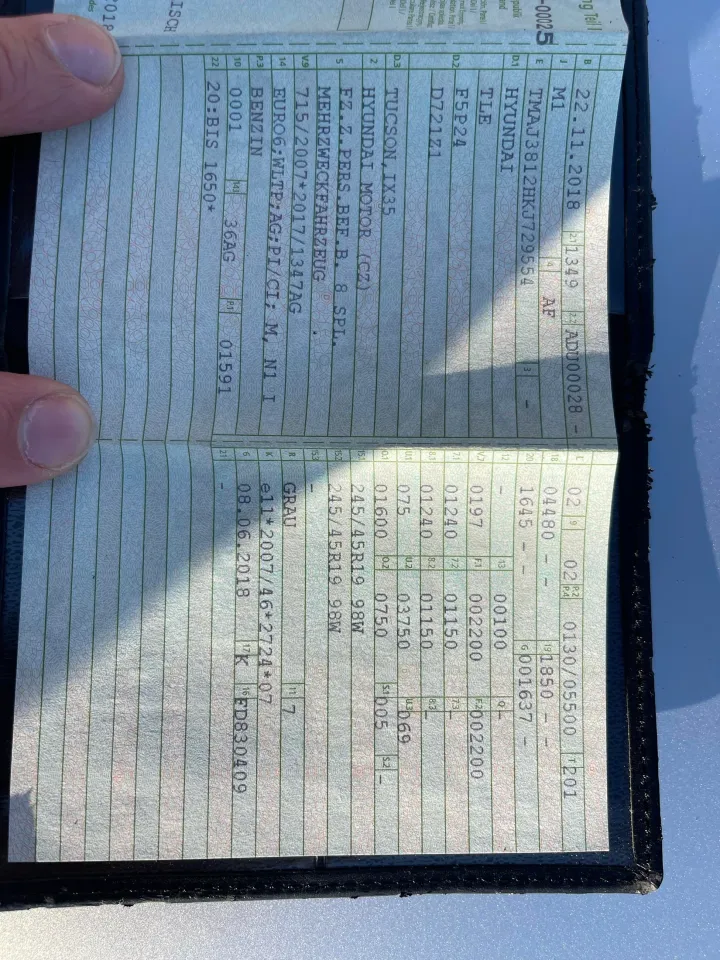 ng Teil I
-00025
ISCH
2018
B 22.11.2018 2.1 1349 2.2 ADU00028 -
J M1 4 AF
E TMAJ3812HKJ729554 3 -
D.1 HYUNDAI
TLE
D.2 F5P24
D721Z1
D.3 TUCSON,IX35
2 HYUNDAI MOTOR (CZ)
5 FZ.Z.PERS.BEF.B. 8 SPL.
MEHRZWECKFAHRZEUG .
V.9 715/2007*2017/1347AG
14 EURO6;WLTP;AG;PI/CI; M, N1 I
P.3 BENZIN
10 0001 14.1 36AG P.1 01591
22 20:BIS 1650*
L 02 9 02 P.2 P.4 0130/05500 T 201
18 04480 - - 19 1850 - -
20 1645 - - G 001637 -
12 - 13 00100 Q -
V.7 0197 F.1 002200 F.2 002200
7.1 01240 7.2 01150 7.3 -
8.1 01240 8.2 01150 8.3 -
U.1 075 U.2 03750 U.3 069
O.1 01600 O.2 0750 S.1 005 S.2 -
15.1 245/45R19 98W
15.2 245/45R19 98W
15.3 -
R GRAU 11 7
K e11*2007/46*2724*07
6 08.06.2018 17 K 16 FD830409
21 -